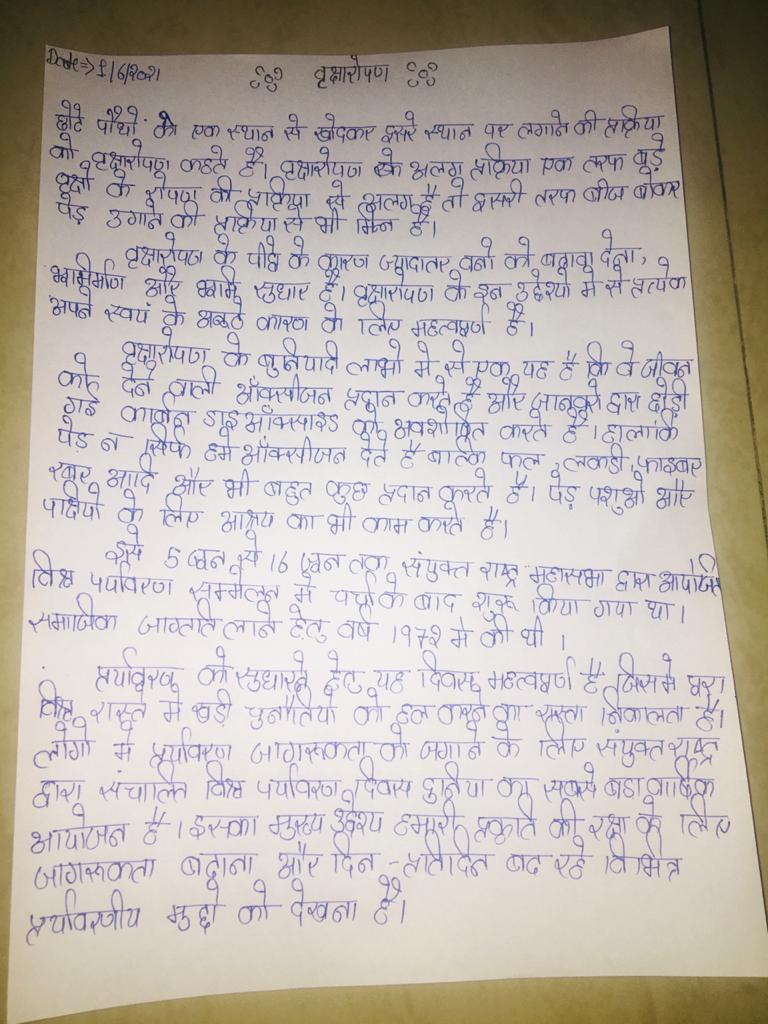 Date => 1/6/2021 वृक्षारोपण
छोटे पौधो को एक स्थान से खोदकर दुसरे स्थान पर लगाने की प्रक्रिया
को वृक्षारोपण कहते है। वृक्षारोपण के अलग प्रक्रिया एक तरफ बड़े
वृक्षो के रोपण की प्रक्रिया से अलग है तो दुसरी तरफ बीज बोकर
पेड़ उगाने की प्रक्रिया से भी भिन्न है।
वृक्षारोपण के पीछे के कारण ज्यादातर वनो को बढ़ावा देना,
भूनिर्माण और भूमि सुधार है। वृक्षारोपण के इन उद्देश्यो मे से प्रत्येक
अपने स्वयं के अनूठे कारण के लिए महत्वपूर्ण है।
वृक्षारोपण के बुनियादी लाभो मे से एक यह है कि वे जीवन
को देने वाली ऑक्सीजन प्रदान करते है और जानवरो द्वारा छोड़ी
गई कार्बन डाइऑक्साइड को अवशोषित करते है। हालांकि
पेड़ न सिर्फ हमे ऑक्सीजन देते है बल्कि फल, लकडी, फाइबर
रबर आदि और भी बहुत कुछ प्रदान करते है। पेड़ पशुओ और
पक्षियो के लिए आश्रय का भी काम करते है।
इसे 5 जून से 16 जून तक संयुक्त राष्ट्र महासभा द्वारा आयोजित
विश्व पर्यावरण सम्मेलन मे चर्चा के बाद शुरू किया गया था।
समाजिक जागृति लाने हेतु वर्ष 1972 मे की थी।
पर्यावरण को सुधारने हेतु यह दिवस महत्वपूर्ण है जिसमे पूरा
विश्व रास्ते मे खड़ी चुनौतियो को हल करने का रास्ता निकालता है।
लोगो मे पर्यावरण जागरूकता को जगाने के लिए संयुक्त राष्ट्र
द्वारा संचालित विश्व पर्यावरण दिवस दुनिया का सबसे बड़ा वार्षिक
आयोजन है। इसका मुख्य उद्देश्य हमारी प्रकृति की रक्षा के लिए
जागरूकता बढ़ाना और दिन-प्रतिदिन बढ रहे विभिन्न
पर्यावरणीय मुद्दो को देखना है।